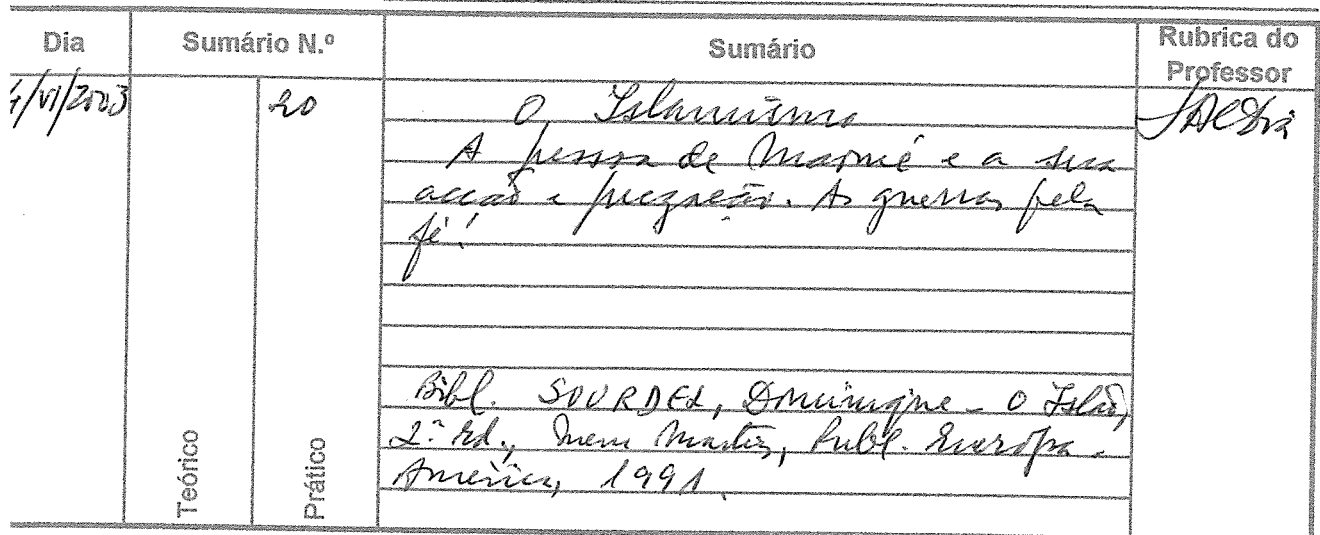 Dia Sumário N.º Sumário Rubrica do
Professor
4/VI/2003 20 O Islamismo
A pessoa de Maomé e a sua
acção e pregação. As guerras pela
fé!
Bibl. SOURDEL, Dominique - O Islão,
2ª Ed., Mem Martins, Publ. Europa-
América, 1991.
Teórico
Prático